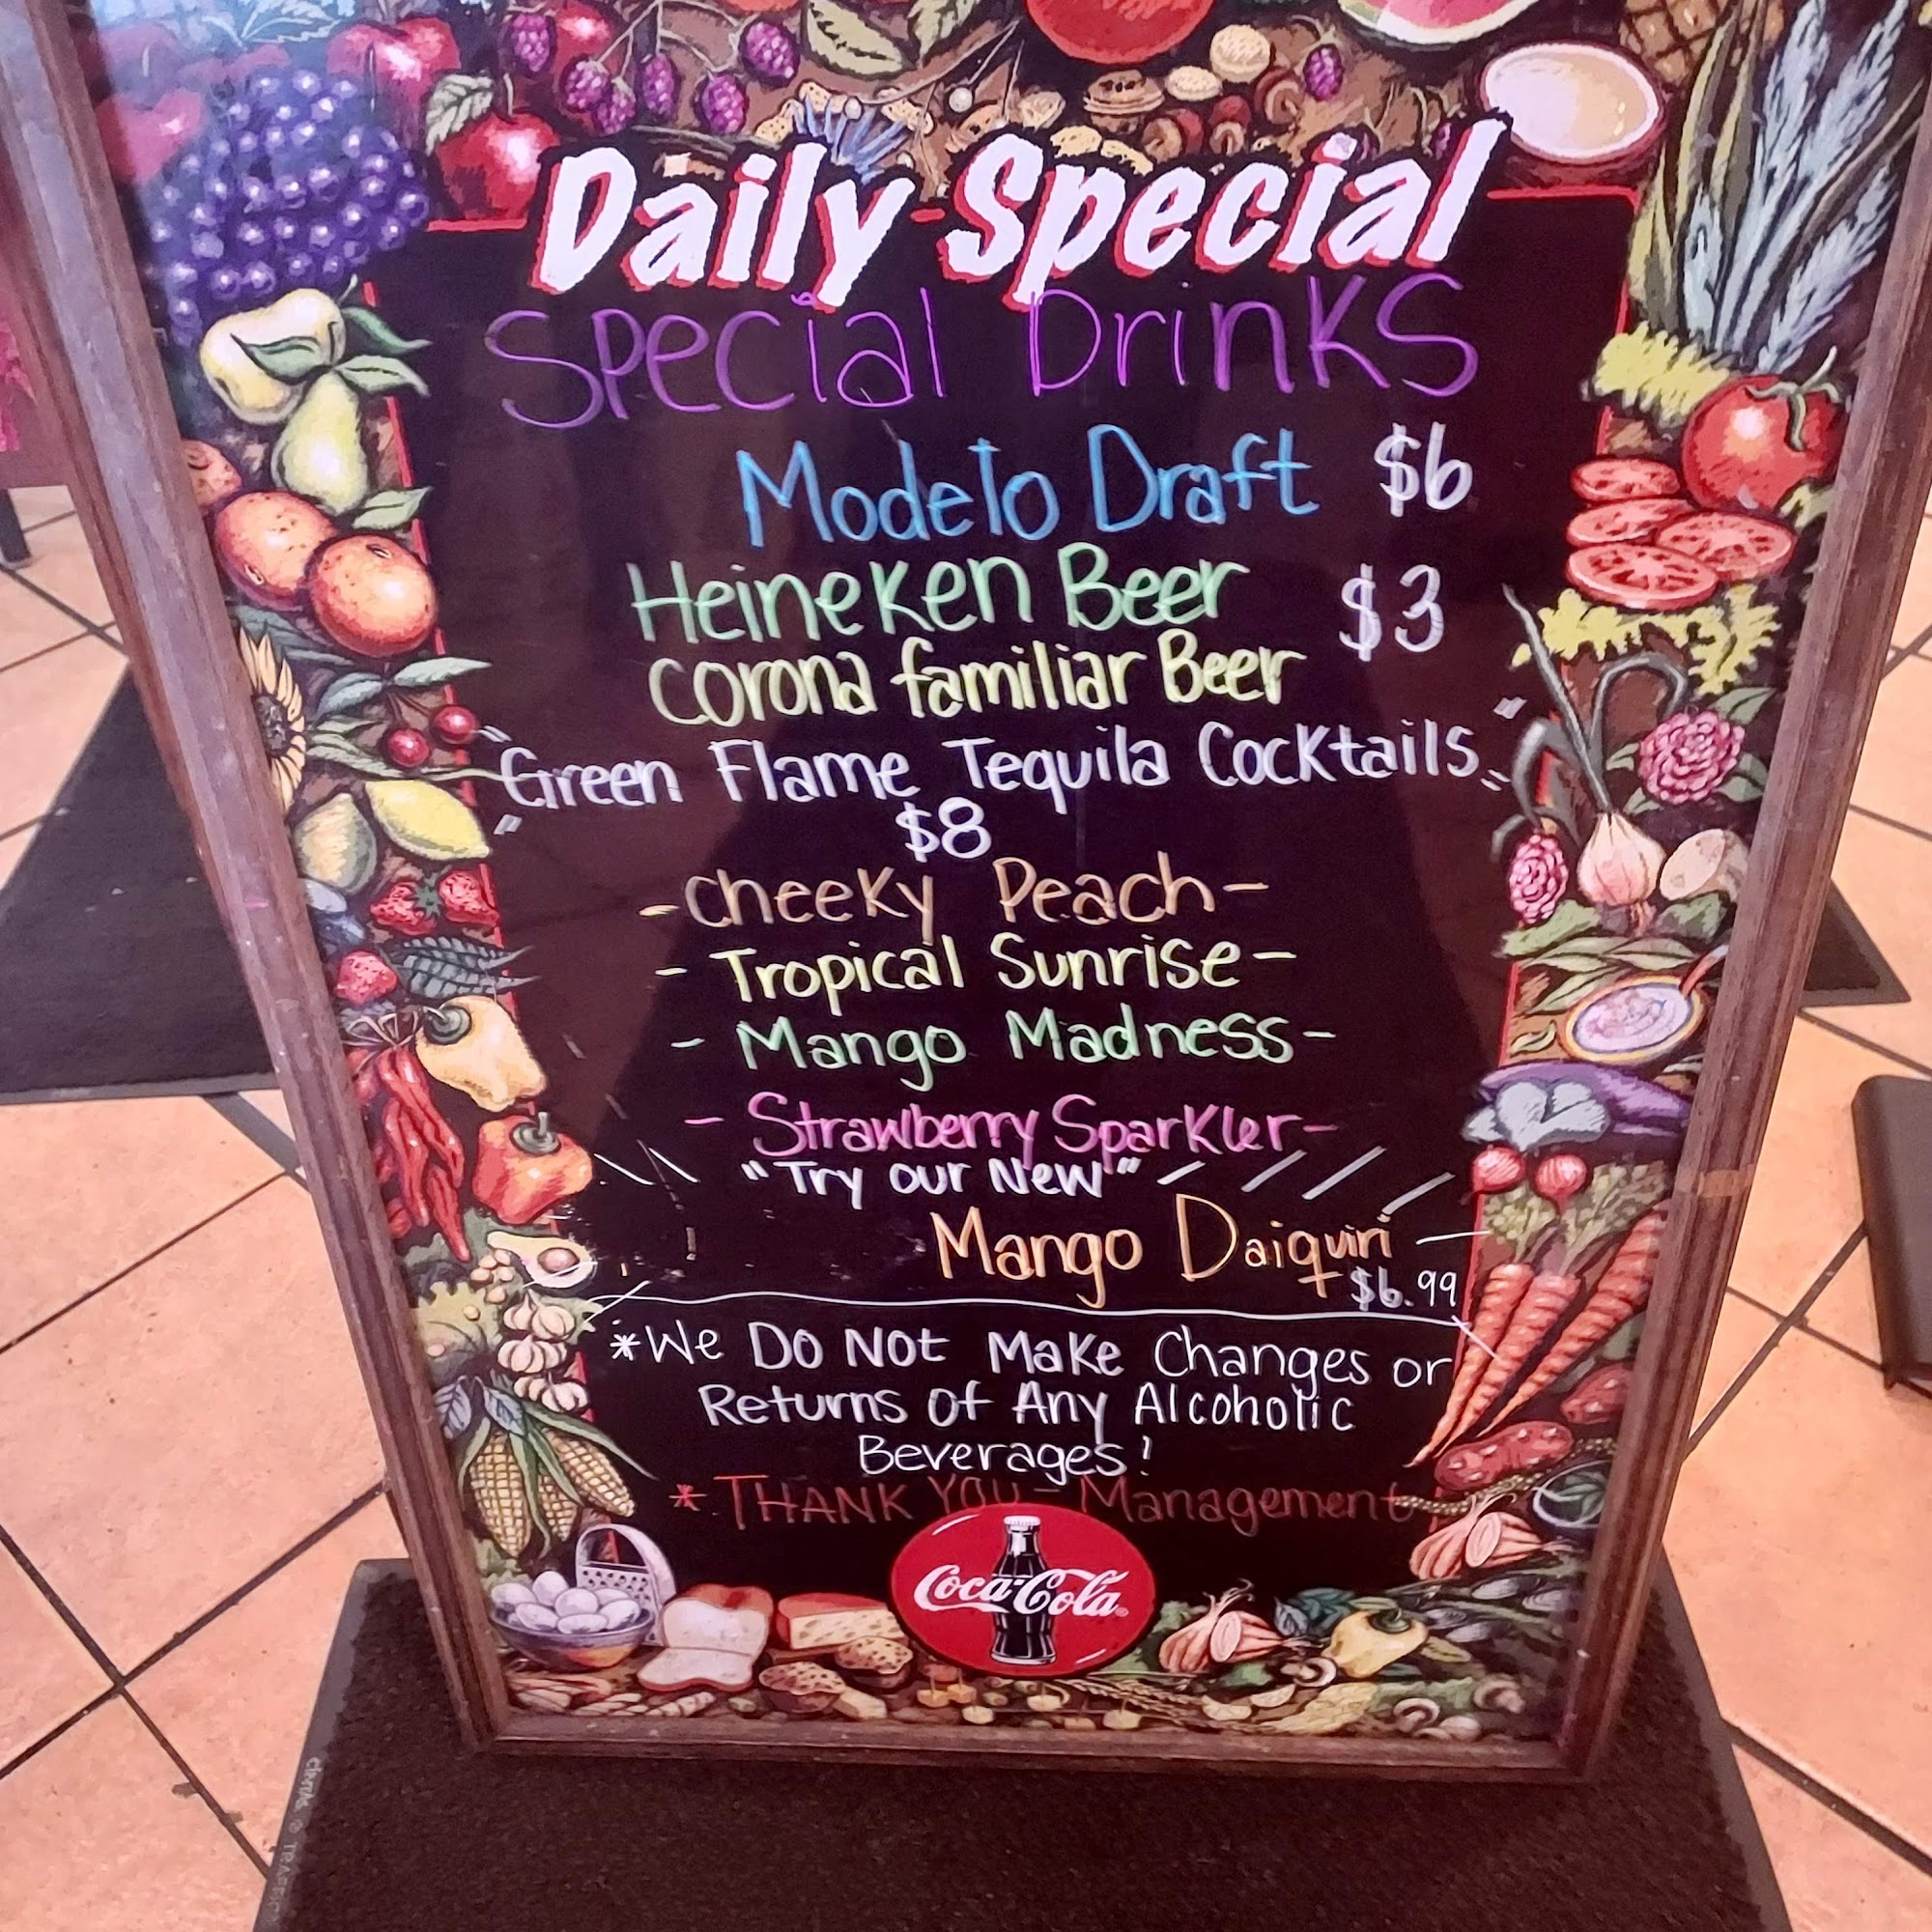 Daily Special
Special Drinks
Modelo Draft $6
Heineken Beer $3
Corona familiar Beer
"Green Flame Tequila Cocktails"
$8
- Cheeky Peach -
- Tropical Sunrise -
- Mango Madness -
- Strawberry Sparkler -
"Try our New"
Mango Daiquiri
$6.99
*We Do Not Make Changes or
Returns of Any Alcoholic
Beverages!
* THANK YOU - Management
Coca-Cola